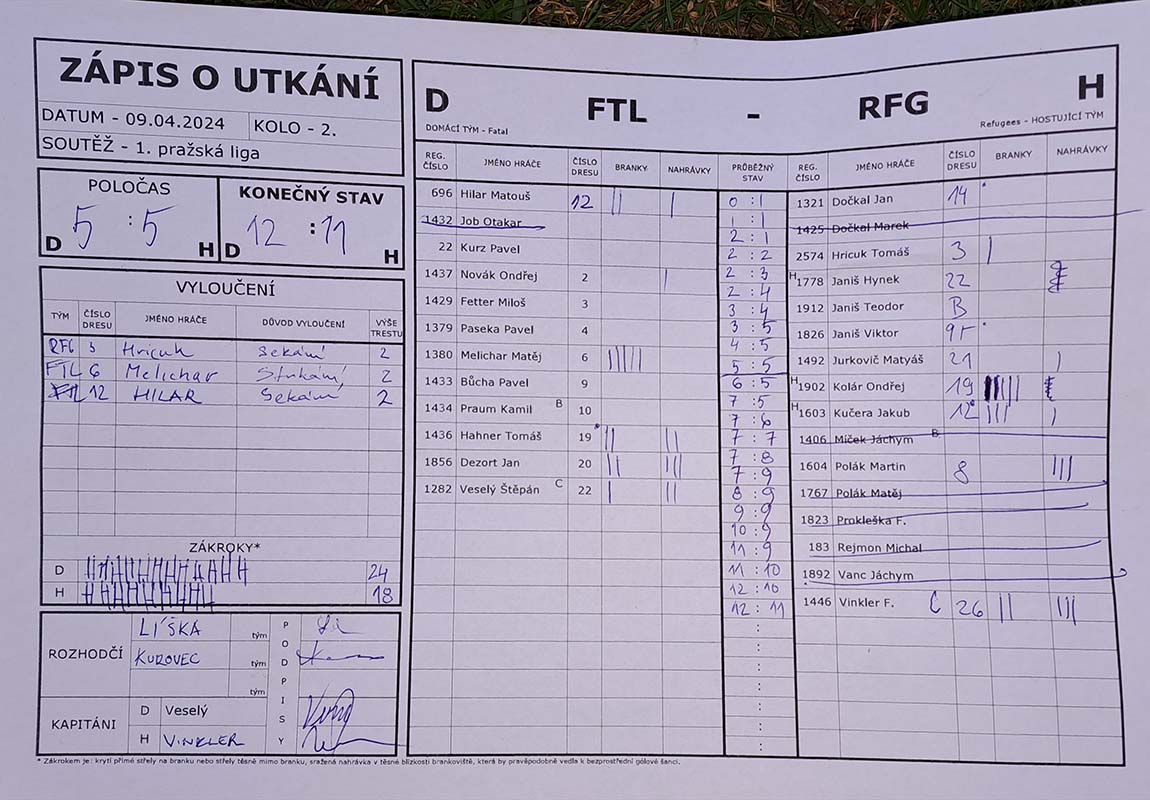 ZÁPIS O UTKÁNÍ
DATUM - 09.04.2024 KOLO - 2.
SOUTĚŽ - 1. pražská liga
POLOČAS
D 5 : 5 H
KONEČNÝ STAV
D 12 : 11 H
VYLOUČENÍ
TÝM ČÍSLO DRESU JMÉNO HRÁČE DŮVOD VYLOUČENÍ VÝŠE TRESTU
RFG 3 Hricuk sekání 2
FTL 6 Melichar 2
FTL 12 HILAR Sekání 2
ZÁKROKY*
D 24
H 18
ROZHODČÍ
LÍŠKA tým
KUROVEC tým
tým
KAPITÁNI
D Veselý
H VINKLER
PODPISY
D FTL - RFG H
DOMÁCÍ TÝM - Fatal
Refugees - HOSTUJÍCÍ TÝM
REG. ČÍSLO JMÉNO HRÁČE ČÍSLO DRESU BRANKY NAHRÁVKY PRŮBĚŽNÝ STAV REG. ČÍSLO JMÉNO HRÁČE ČÍSLO DRESU BRANKY NAHRÁVKY
696 Hilar Matouš 12 || |
1432 Job Otakar
22 Kurz Pavel
1437 Novák Ondřej 2 |
1429 Fetter Miloš 3
1379 Paseka Pavel 4
1380 Melichar Matěj 6 |||||
1433 Bůcha Pavel 9
1434 Praum Kamil B 10
1436 Hahner Tomáš 19 || ||
1856 Dezort Jan 20 || |||
1282 Veselý Štěpán C 22 | ||
0 : 1
1 : 1
2 : 1
2 : 2
2 : 3
2 : 4
3 : 4
3 : 5
4 : 5
5 : 5
6 : 5
7 : 5
7 : 6
7 : 7
7 : 8
7 : 9
8 : 9
9 : 9
10 : 9
11 : 9
11 : 10
12 : 10
12 : 11
1321 Dočkal Jan 14
1425 Dočkal Marek
2574 Hricuk Tomáš 3 |
H 1778 Janiš Hynek 22
1912 Janiš Teodor B
1826 Janiš Viktor
1492 Jurkovič Matyáš 21 |
H 1902 Kolár Ondřej 19
H 1603 Kučera Jakub 12 ||| |
1406 Miček Jáchym B
1604 Polák Martin 8 |||
1767 Polák Matěj
1823 Prokleška F.
183 Rejmon Michal
1892 Vanc Jáchym
1446 Vinkler F. C 26 || |||
* Zákrokem je: krytí přímé střely na branku nebo střely těsně mimo branku, sražená nahrávka v těsné blízkosti brankoviště, která by pravěpodobně vedla k bezprostřední gólové šanci.